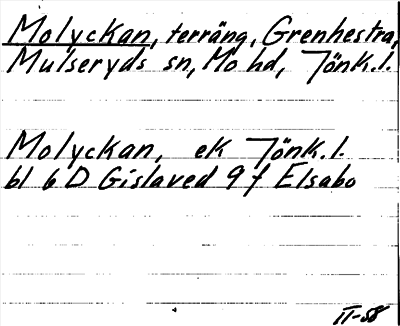 Molyckan, terräng, Grenhestra,
Mulseryds sn, Mo hd, Jönk.l.
Molyckan, ek Jönk.l.
bl 6 D Gislaved 9 f Elsabo
II-58